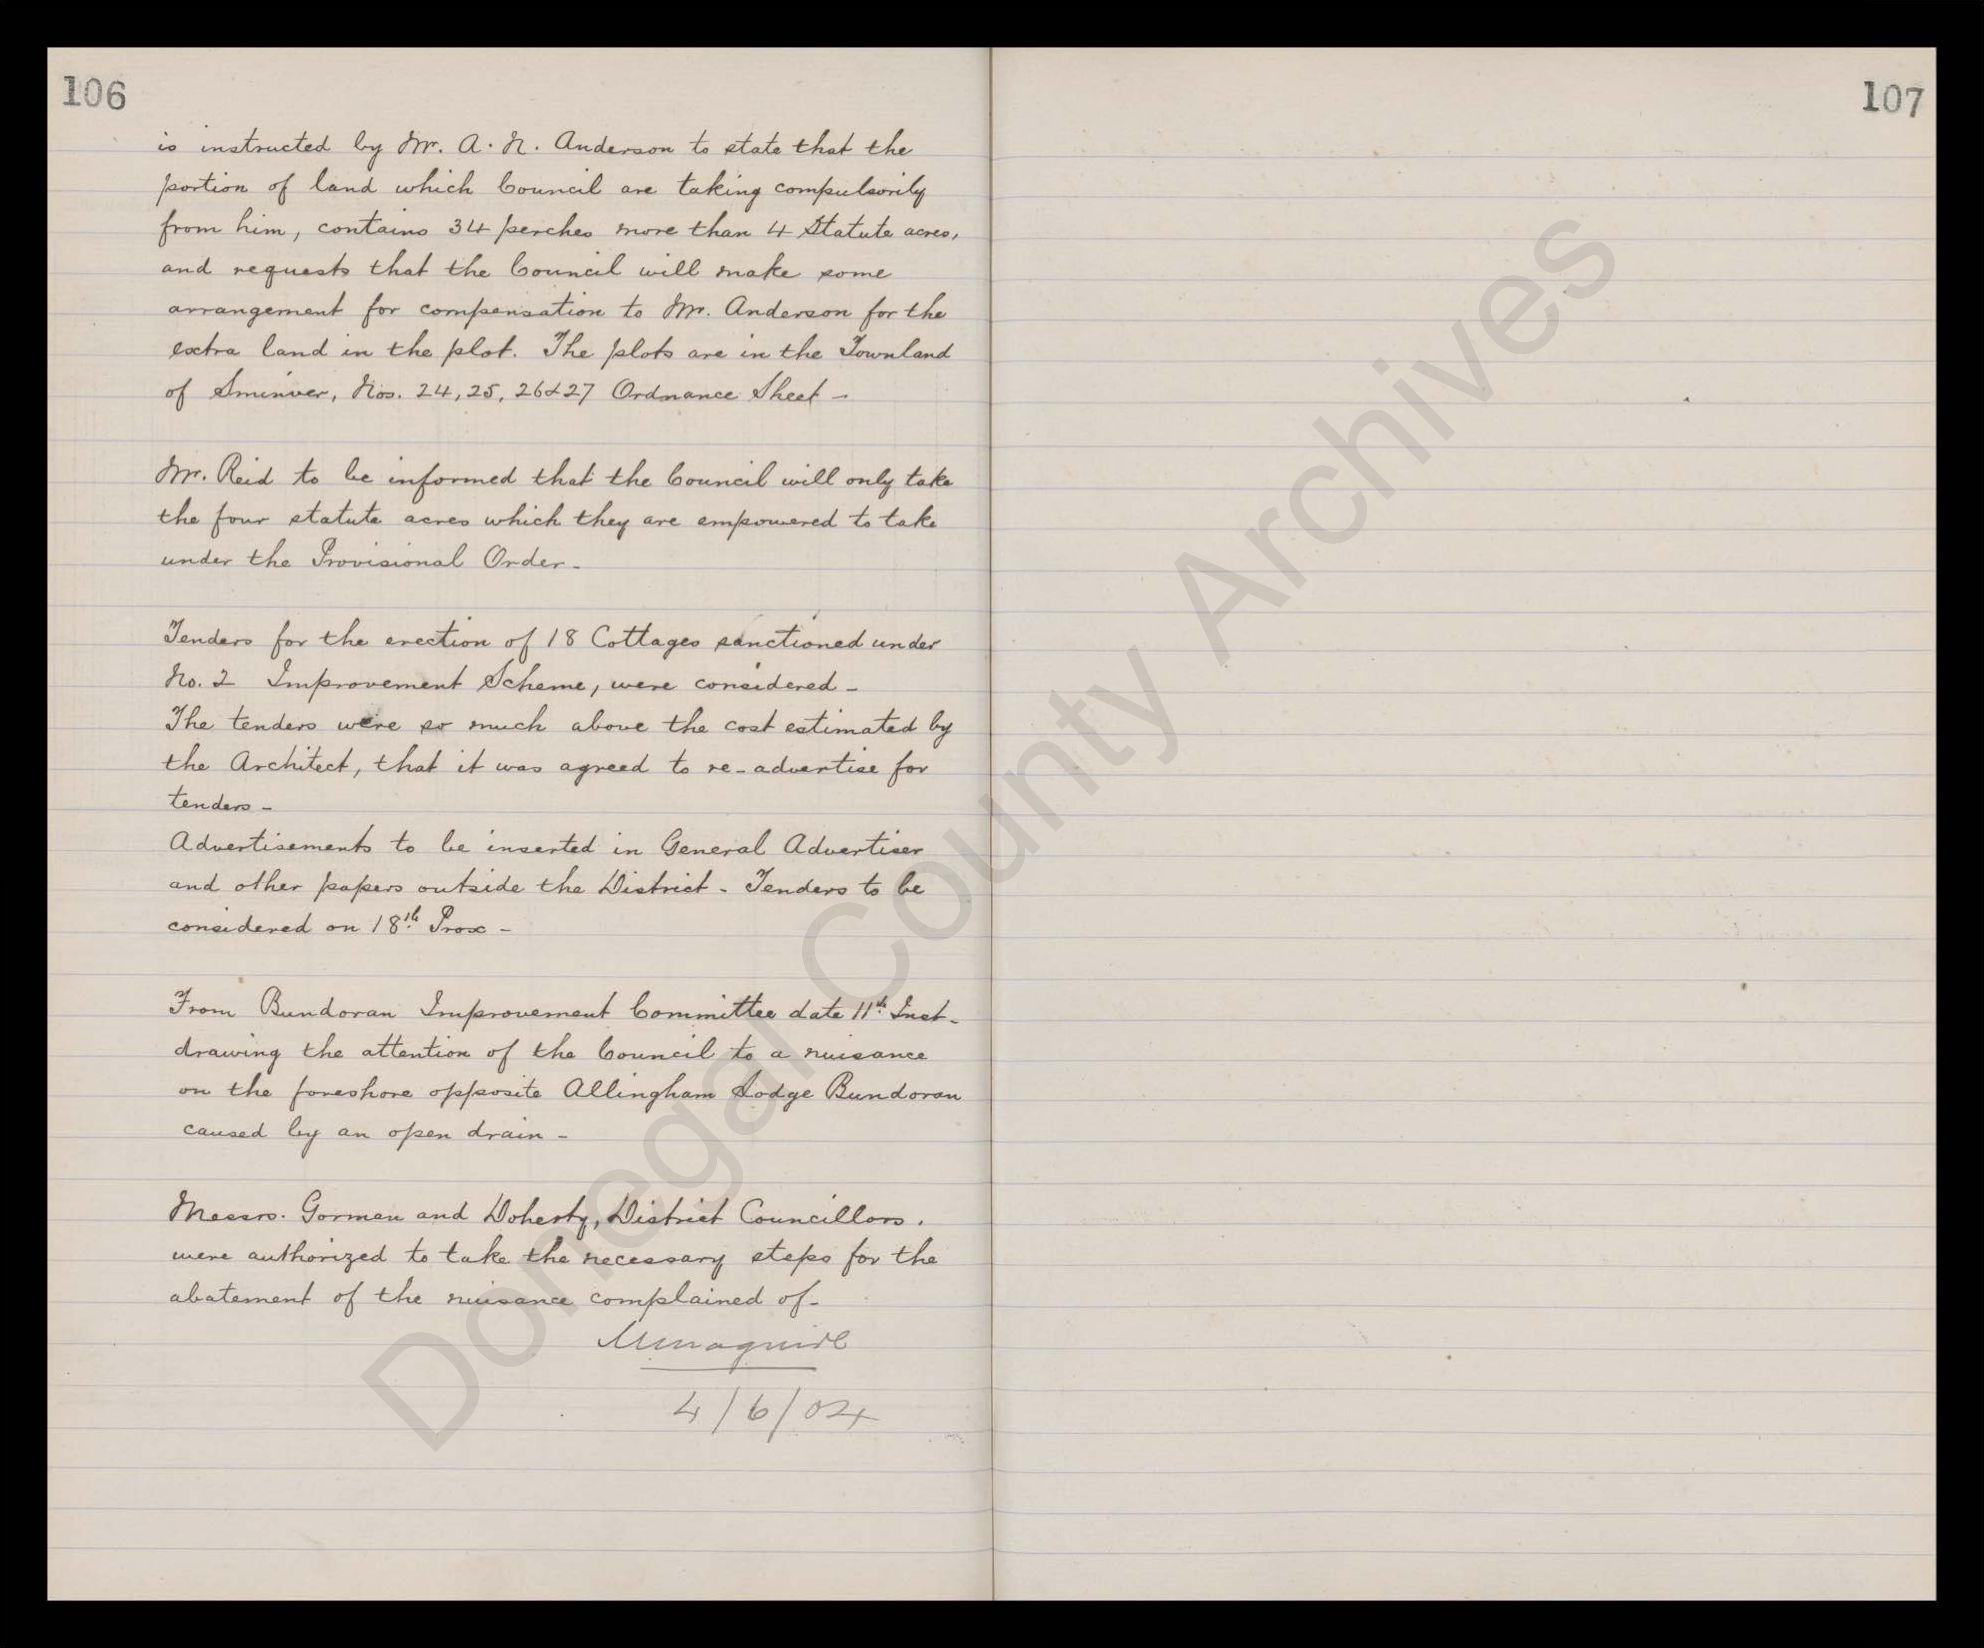 106
is instructed by Mr. A. N. Anderson to state that the
portion of land which Council are taking compulsorily
from him, contains 34 perches more than 4 Statute acres,
and requests that the Council will make some
arrangement for compensation to Mr. Anderson for the
extra land in the plot. The plots are in the Townland
of Sminver, Nos. 24, 25, 26 & 27 Ordnance Sheet -
Mr. Reid to be informed that the Council will only take
the four statute acres which they are empowered to take
under the Provisional Order -
Tenders for the erection of 18 Cottages sanctioned under
No. 2 Improvement Scheme, were considered -
The tenders were so much above the cost estimated by
the Architect, that it was agreed to re-advertise for
tenders -
Advertisements to be inserted in General Advertiser
and other papers outside the District - Tenders to be
considered on 18th Prox -
From Bundoran Improvement Committee date 11th Inst -
drawing the attention of the Council to a nuisance
on the foreshore opposite Allingham Lodge Bundoran
caused by an open drain -
Messrs. Gorman and Doherty, District Councillors.
were authorized to take the necessary steps for the
abatement of the nuisance complained of -
4/6/04
107
Donegal County Archives